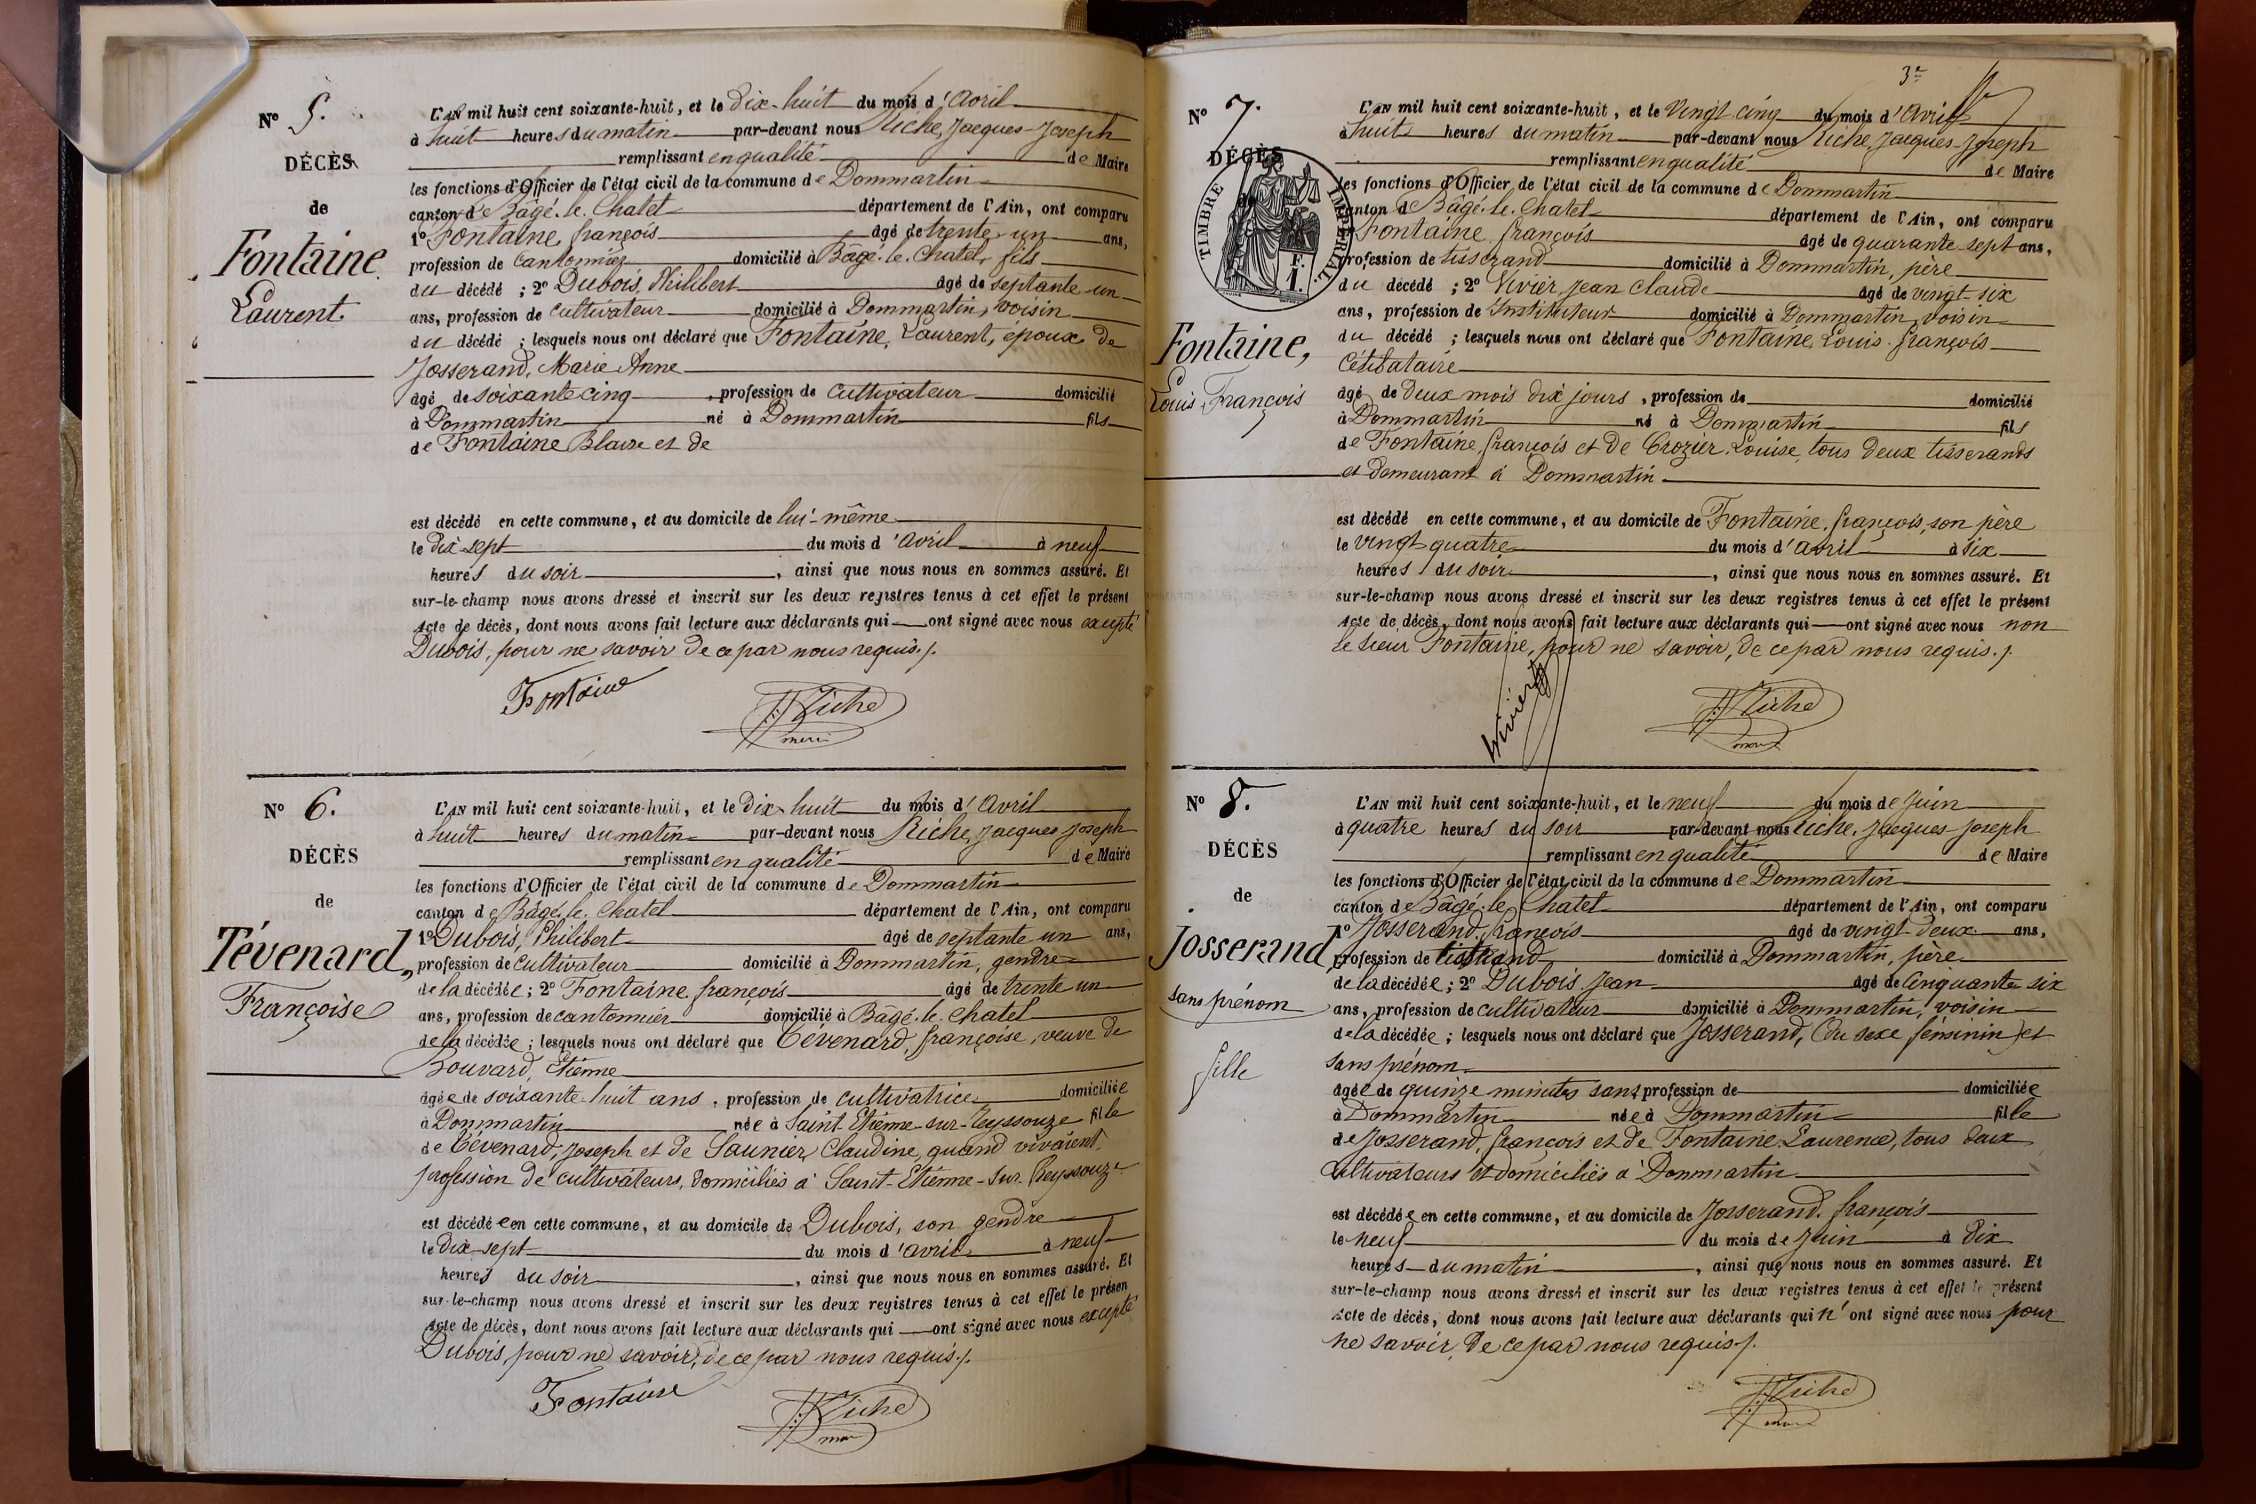 N° 5.
DÉCÈS
de
Fontaine
Laurent.
L'AN mil huit cent soixante-huit, et le dix-huit du mois d'Avril
à huit heures du matin par-devant nous Riche, Jacques-Joseph
remplissant en qualité de Maire
les fonctions d'Officier de l'état civil de la commune de Dommartin
canton de Bâgé-le-Chatel département de l'Ain, ont comparu
1° Fontaine, françois âgé de trente-un ans,
profession de Cantonnier domicilié à Bâgé-le-Chatel, fils
du décédé ; 2° Dubois, Philibert âgé de septante-un
ans, profession de cultivateur domicilié à Dommartin, voisin
du décédé ; lesquels nous ont déclaré que Fontaine, Laurent, époux de
Josserand, Marie Anne
âgé de soixante cinq , profession de cultivateur domicilié
à Dommartin né à Dommartin fils
de Fontaine Blaise et de
est décédé en cette commune, et au domicile de lui-même
le dix-sept du mois d'avril à neuf
heures du soir , ainsi que nous nous en sommes assuré. Et
sur-le-champ nous avons dressé et inscrit sur les deux registres tenus à cet effet le présent
acte de décès, dont nous avons fait lecture aux déclarants qui ont signé avec nous excepté
Dubois, pour ne savoir de ce par nous requis./.
Fontaine
Riche
N° 6.
DÉCÈS
de
Tévenard,
Françoise
L'AN mil huit cent soixante-huit, et le dix-huit du mois d'Avril
à huit heures du matin par-devant nous Riche, Jacques Joseph
remplissant en qualité de Maire
les fonctions d'Officier de l'état civil de la commune de Dommartin
canton de Bâgé-le-Chatel département de l'Ain, ont comparu
1° Dubois, Philibert âgé de septante un ans,
profession de cultivateur domicilié à Dommartin, gendre
de la décédée ; 2° Fontaine françois âgé de trente un
ans, profession de cantonnier domicilié à Bâgé-le-Chatel
de la décédée ; lesquels nous ont déclaré que Tévenard, françoise, veuve de
Bouvard, Etienne
âgée de soixante-huit ans , profession de cultivatrice domiciliée
à Dommartin née à Saint-Etienne-sur-Reyssouze fille
de Tévenard, Joseph et de Saunier Claudine, quand vivaient
profession de cultivateurs, domiciliés à Saint-Etienne-sur-Reyssouze
est décédée en cette commune, et au domicile de Dubois, son gendre
le dix-sept du mois d'avril à neuf
heures du soir , ainsi que nous nous en sommes assuré. Et
sur-le-champ nous avons dressé et inscrit sur les deux registres tenus à cet effet le présen
acte de décès, dont nous avons fait lecture aux déclarants qui ont signé avec nous excepté
Dubois, pour ne savoir, de ce par nous requis./.
Fontaine
Riche
3e
N° 7.
DÉCÈS
TIMBRE IMPERIAL
F.
1.
Fontaine,
Louis François
L'AN mil huit cent soixante-huit, et le vingt cinq du mois d'Avril
à huit heures du matin par-devant nous Riche, Jacques-Joseph
remplissant en qualité de Maire
les fonctions d'Officier de l'état civil de la commune de Dommartin
canton de Bâgé-le-Chatel département de l'Ain, ont comparu
Fontaine françois âgé de quarante sept ans,
profession de tisserand domicilié à Dommartin, père
du décédé ; 2° Vivier, Jean Claude âgé de vingt-six
ans, profession de Instituteur domicilié à Dommartin, voisin
du décédé ; lesquels nous ont déclaré que Fontaine, Louis-françois
célibataire
âgé de deux mois dix jours , profession de domicilié
à Dommartin né à Dommartin fils
de Fontaine, françois et de Crozier, Louise, tous deux tisserands
et demeurant à Dommartin
est décédé en cette commune, et au domicile de Fontaine, françois, son père
le vingt-quatre du mois d'avril à six
heures du soir , ainsi que nous nous en sommes assuré. Et
sur-le-champ nous avons dressé et inscrit sur les deux registres tenus à cet effet le présent
acte de décès, dont nous avons fait lecture aux déclarants qui ont signé avec nous non
le sieur Fontaine, pour ne savoir, de ce par nous requis./.
Vivier
Riche
N° 8.
DÉCÈS
de
Josserand,
sans prénom
fille
L'AN mil huit cent soixante-huit, et le neuf du mois de Juin
à quatre heures du soir par-devant nous Riche, Jacques-Joseph
remplissant en qualité de Maire
les fonctions d'Officier de l'état civil de la commune de Dommartin
canton de Bâgé-le-Chatel département de l'Ain, ont comparu
1° Josserand, françois âgé de vingt-deux ans,
profession de tisserand domicilié à Dommartin, père
de la décédée ; 2° Dubois, Jean âgé de cinquante-six
ans, profession de cultivateur domicilié à Dommartin, voisin
de la décédée ; lesquels nous ont déclaré que Josserand, du sexe féminin et
sans prénom
âgée de quinze minutes sans profession de domiciliée
à Dommartin née à Dommartin fille
de Josserand, françois et de Fontaine Laurence, tous deux
cultivateurs et domiciliés à Dommartin
est décédée en cette commune, et au domicile de Josserand, françois
le neuf du mois de Juin à dix
heures du matin , ainsi que nous nous en sommes assuré. Et
sur-le-champ nous avons dressé et inscrit sur les deux registres tenus à cet effet le présent
acte de décès, dont nous avons fait lecture aux déclarants qui n'ont signé avec nous pour
ne savoir, de ce par nous requis./.
Riche